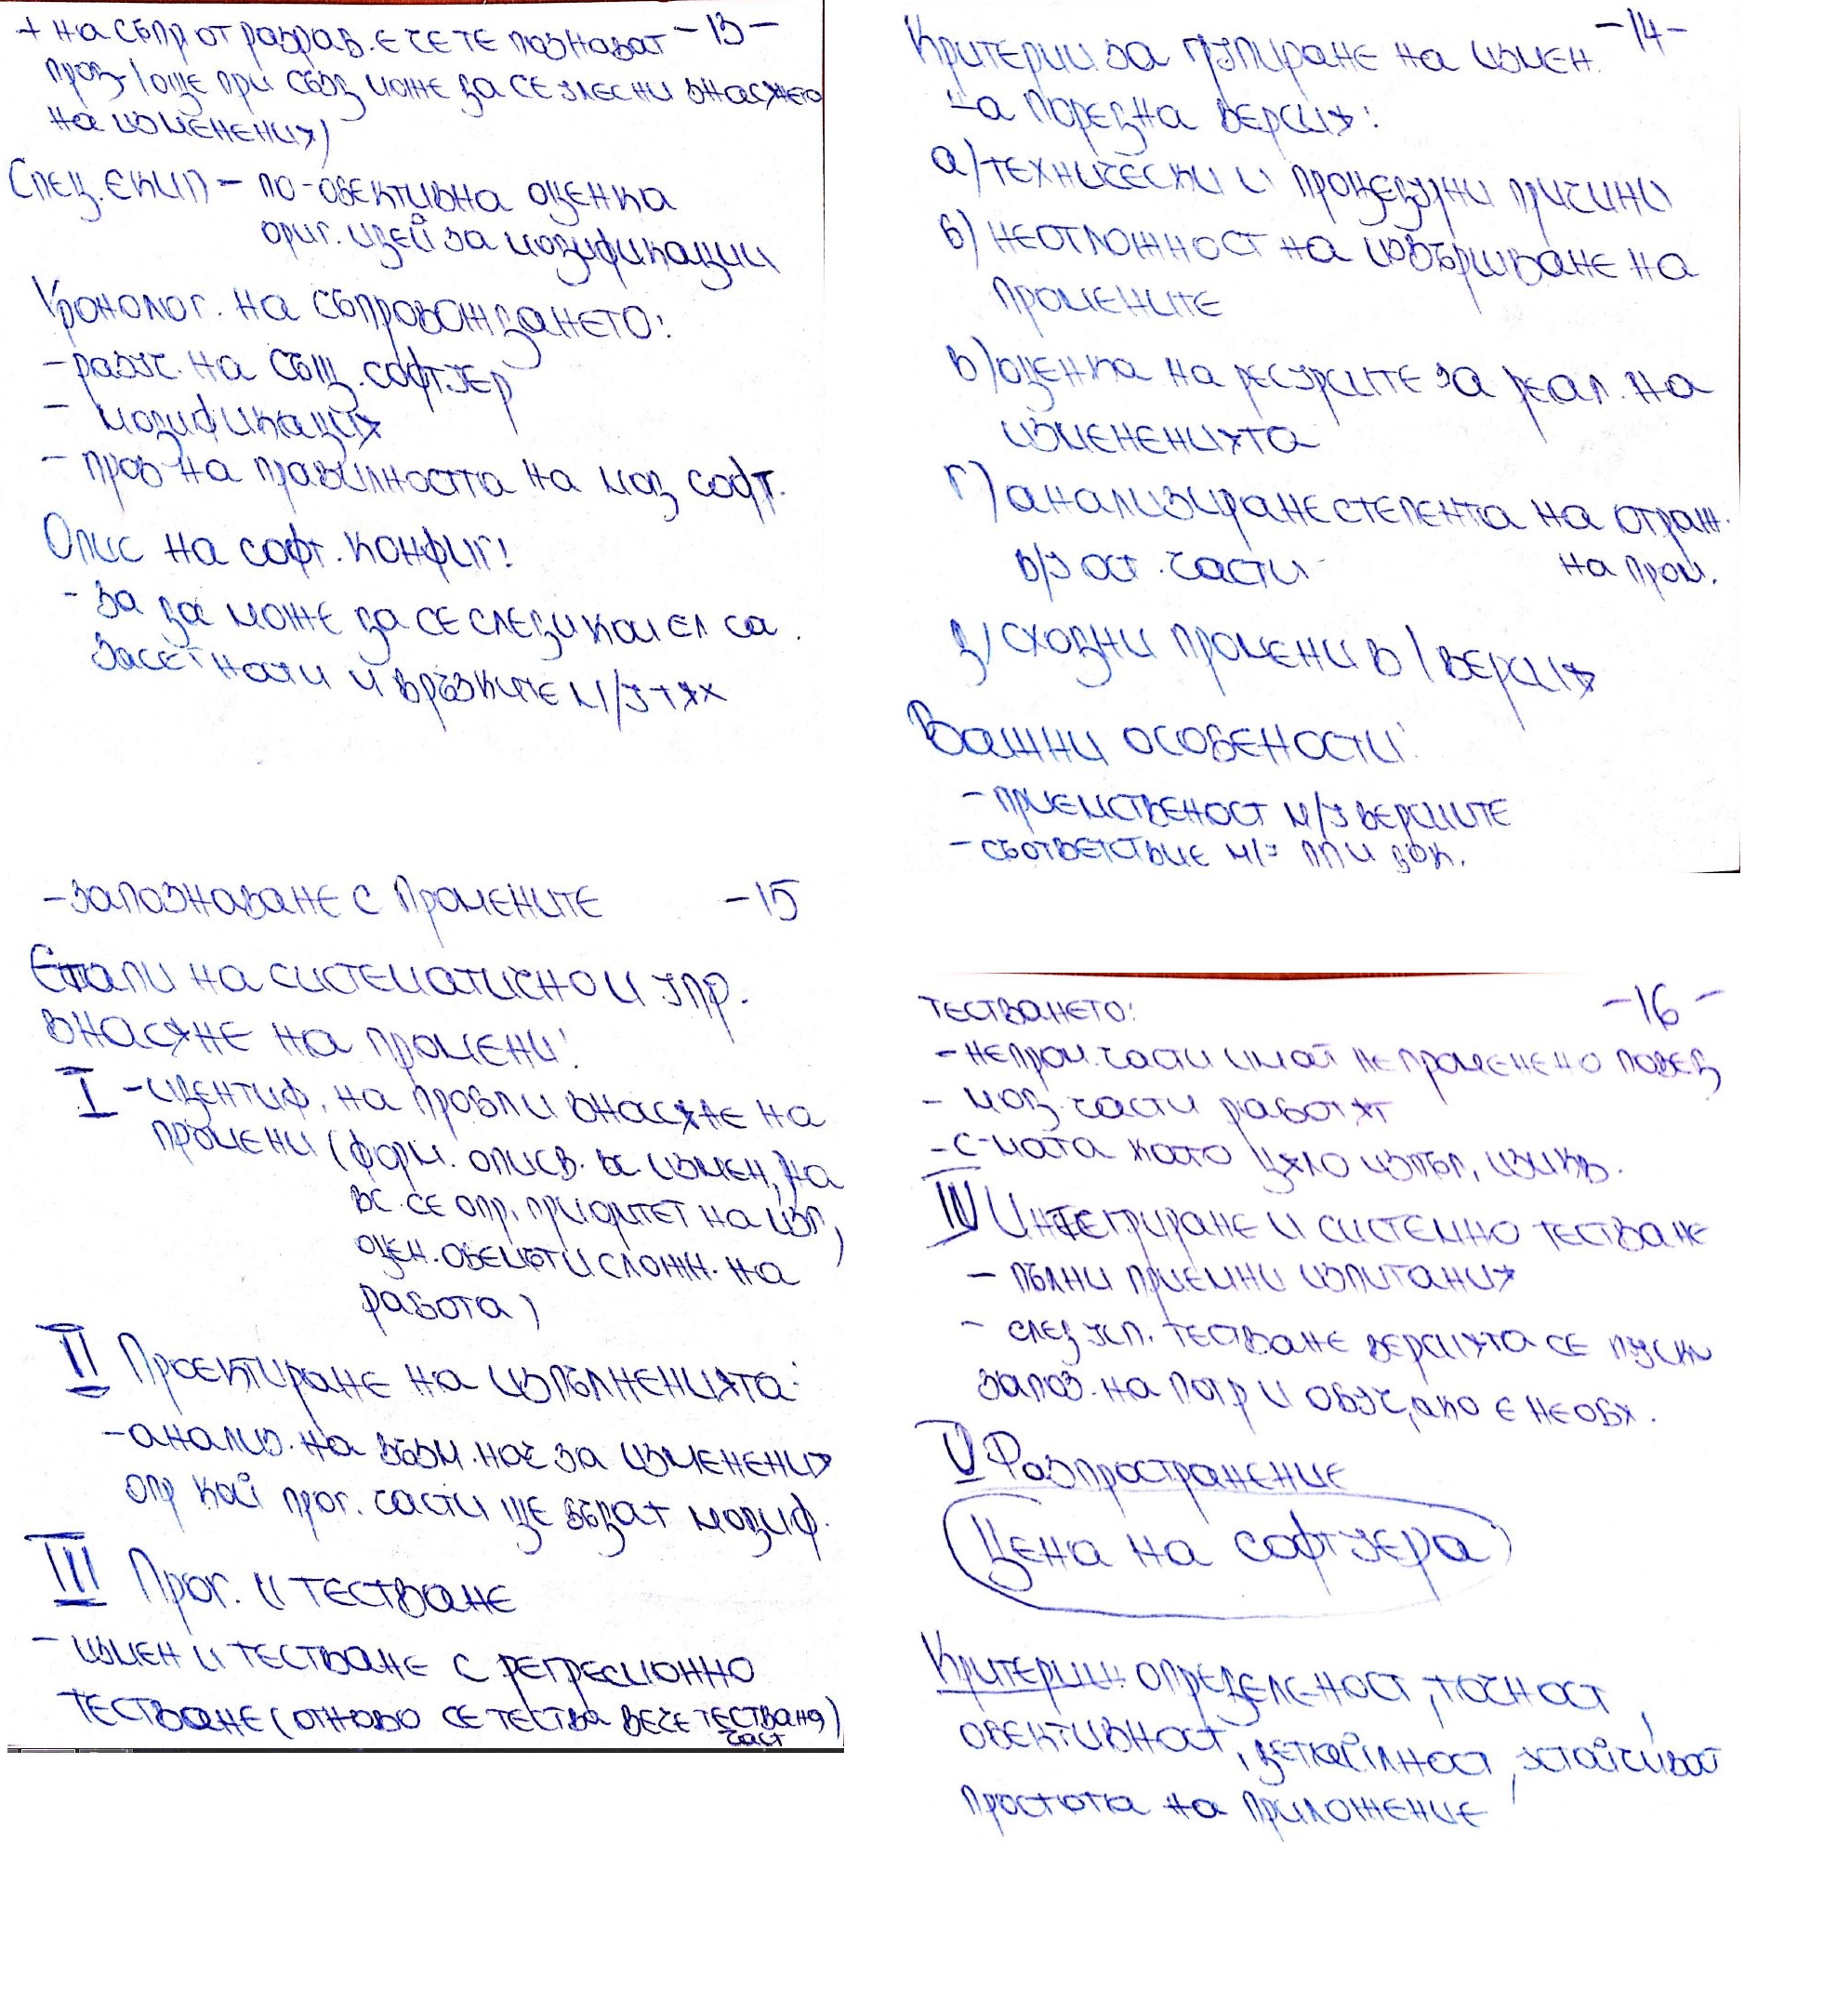 + на съпр от разраб. е че те познават -13-
прод/още при създ може да се улесни внасянето
на изменения)
Спец. екип - по-обективна оценка
ориг. идеи за модификации
Хронолог. на съпровождането:
- разуч. на същ. софтуер
- модификация
- пров на правилността на мод софт.
Опис на софт. конфиг!
- за да може да се следи кои ел са
засегнати и връзките м/у тях
Критерии за групиране на измен. -14-
на поредна версия:
а) технически и процедурни причини
б) неотложност на извършване на
промените
в) оценка на ресурсите за реал. на
измененията
г) анализиране степента на отраж.
в/у ост. части на пром.
д) сходни промени в 1 версия
Важни особености:
- приемственост м/у версиите
- съответствие м/у ПП и док.
- запознаване с промените -15
Етапи на систематично и упр.
внасяне на промени!
I - идентиф. на пробл и внасяне на
промени (форм. описв. вс измен, на
вс. се опр. приоритет на изп,
оцен. обемът и сложн. на
работа)
II Проектиране на изпълненията:
- анализ. на възм. нач за изменения
опр кой прог. части ще бъдат модиф.
III Прог. и тестване
- измен и тестване с регресионно
тестване (отново се тества вече тествана)
част
тестването: -16-
- непром. части имат непроменено повед
- мод. части работят
- с-мата като цяло изпъл, изискв.
IV Интегриране и системно тестване
- пълни приемни изпитания
- след усп. тестване версията се пуска
запоз. на потр и обуч, ако е необх.
V Разпространение
Цена на софтуера
Критерии: определеност, точност,
обективност, детайлност, устойчивост
простота на приложение